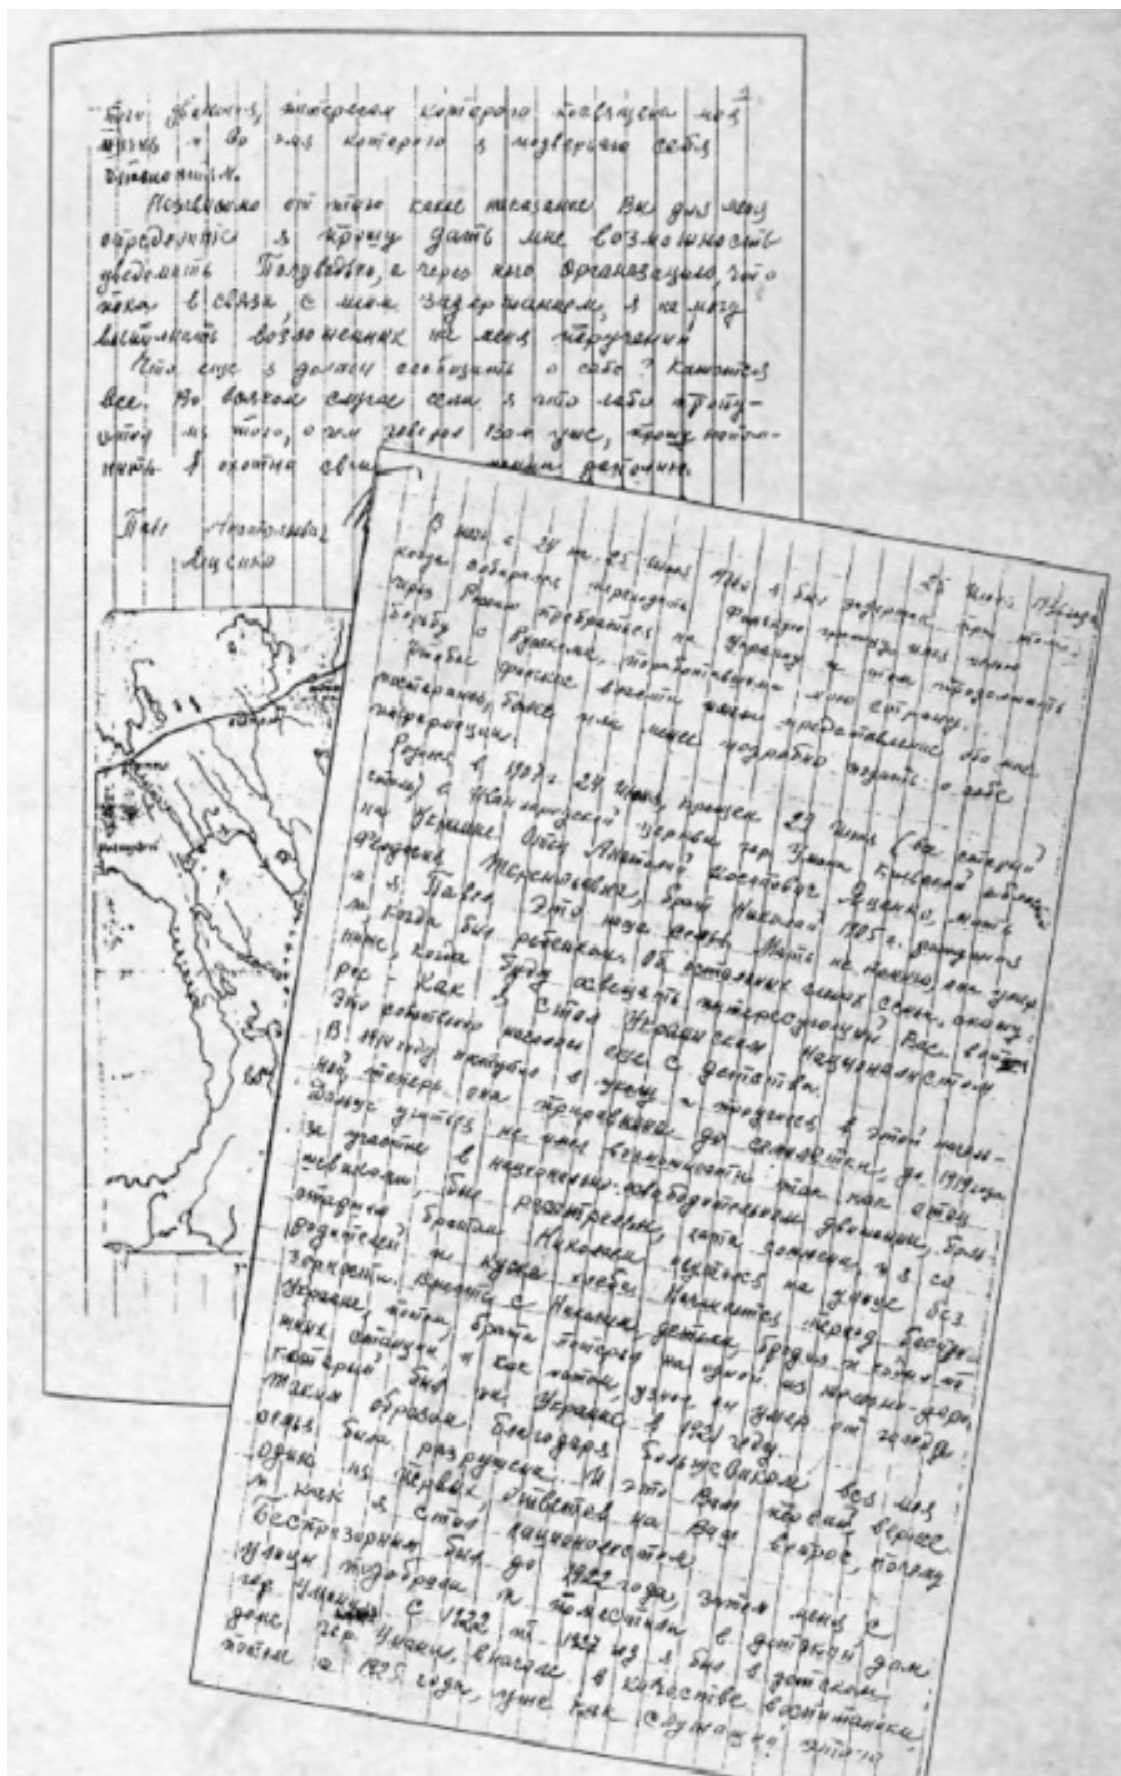 того движения, интересам которого посвящена моя
жизнь и во имя которого я подвергаю себя
Независимо от того какое наказание Вы для меня
определите я прошу дать мне возможность
уведомить Полуведько, а через него Организацию, что
пока в связи с моим задержанием, я не могу
выполнять возложенных на меня поручений
Что еще я должен сообщить о себе? Кажется
все. Во всяком случае если я что либо пропу-
стил из того, о чем говорил Вам уже, прошу напом-
нить я охотно
Павел Анатольевич
Яценко
25 Июня 1936 года
В ночь с 24 на 25 Июня я был задержан при том,
когда собирался переходить Финскую границу
через Россию пробраться на Украину и там продолжать
борьбу с Русскими, поработившими мою страну.
Чтобы финские власти имели представление обо мне
постараюсь более или менее подробно подать о себе
информацию.
Родился в 1907 г. 24 Июня, крещен 29 Июня (по старому
стилю) в церкви гор. Умани Киевской области
на Украине Отец Анатолий Иосифович Яценко, мать
Терентьевна, брат Николай 1905 г. рождения
и я Павел. Это наша семья. Мать не помню, она умерла
когда был ребенком. Об остальных членах семьи, скажу
ниже, когда буду освещать интересующий Вас воп-
рос - Как я стал Украинским Националистом
Это еще с детства.
В 1914 году поступил в школу и проучился в этой началь-
ной, теперь она приравнена до семилетки, до 1919 года.
Дальше учиться не имел возможности так как отец
за участие в национально-освободительном движении, боль-
шевиками, был расстрелян, хата сожжена, и я со
старшим братом Николаем очутились на улице без
родителей и куска хлеба. Начинается период беспри-
зорности. Вместе с Николаем, детьми, бродил и ездил по
Украине, потом, брата потерял на одной из железно-доро-
жных станций, и как потом, узнал, он умер от голода
который был на Украине в 1921 году.
Таким образом благодаря большевикам вся моя
семья была разрушена. И это Вам первый, вернее
один из первых, ответов на Ваш вопрос, почему
и как я стал националистом.
Беспризорным был до 1922 года, затем меня с
улицы подобрали и поместили в детский дом
гор. Умани. С 1922 по 1927 год я был в детском
доме гор. Умани, вначале в качестве воспитанника,
потом с 1925 года, уже как служащий этого